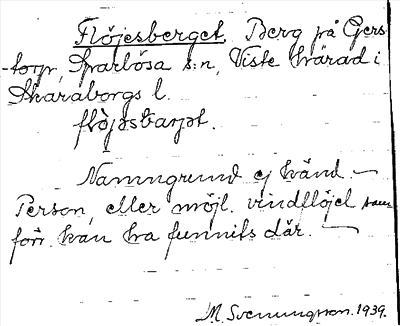 Flöjesberget. Berg på Gers-
-torp, Sparlösa s:n, Viste härad i
Skaraborgs l.
flö̀jəsbarjət.
Namngrund ej känd. —
Person, eller möjl. vindflöjel som
förr kan ha funnits där. —
M. Svenungsson. 1939.